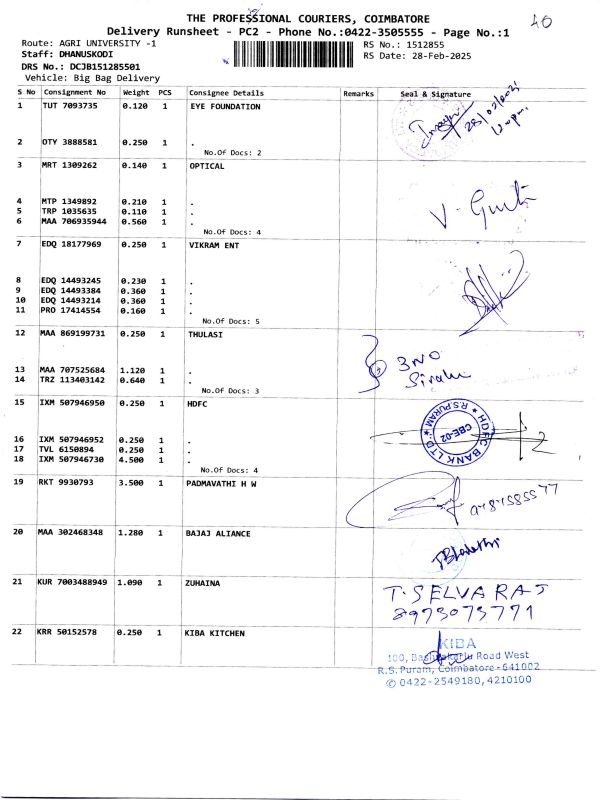 THE PROFESSIONAL COURIERS, COIMBATORE
40
Delivery Runsheet - PC2 - Phone No.:0422-3505555 - Page No.:1
Route: AGRI UNIVERSITY -1
RS No.: 1512855
Staff: DHANUSKODI
RS Date: 28-Feb-2025
DRS No.: DCJB151285501
Vehicle: Big Bag Delivery
S No Consignment No Weight PCS Consignee Details Remarks Seal & Signature
1 TUT 7093735 0.120 1 EYE FOUNDATION
2 OTY 3888581 0.250 1 .
No.Of Docs: 2
3 MRT 1309262 0.140 1 OPTICAL
4 MTP 1349892 0.210 1 .
5 TRP 1035635 0.110 1 .
6 MAA 706935944 0.560 1 .
No.Of Docs: 4
7 EDQ 18177969 0.250 1 VIKRAM ENT
8 EDQ 14493245 0.230 1 .
9 EDQ 14493384 0.360 1 .
10 EDQ 14493214 0.360 1 .
11 PRO 17414554 0.160 1 .
No.Of Docs: 5
12 MAA 869199731 0.250 1 THULASI
3 NO
13 MAA 707525684 1.120 1 .
14 TRZ 113403142 0.640 1 .
No.Of Docs: 3
15 IXM 507946950 0.250 1 HDFC
HDFC BANK LTD
R.S.PURAM
CBE-02
16 IXM 507946952 0.250 1 .
17 TVL 6150894 0.250 1 .
18 IXM 507946730 4.500 1 .
No.Of Docs: 4
19 RKT 9930793 3.500 1 PADMAVATHI H W
20 MAA 302468348 1.280 1 BAJAJ ALIANCE
21 KUR 7003488949 1.090 1 ZUHAINA
T. SELVARAJ
8973073771
22 KRR 50152578 0.250 1 KIBA KITCHEN
KIBA
100, Road West
R.S. Puram, Coimbatore - 641002
✆ 0422-2549180, 4210100